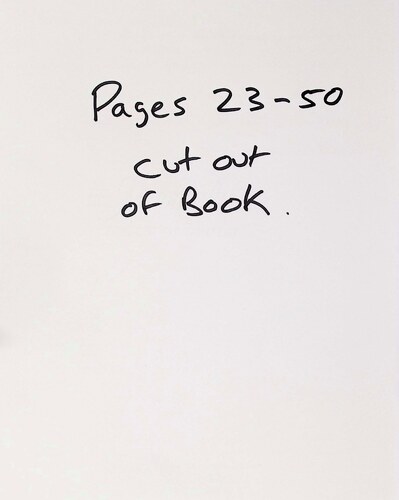 Pages 23-50
cut out
of Book.